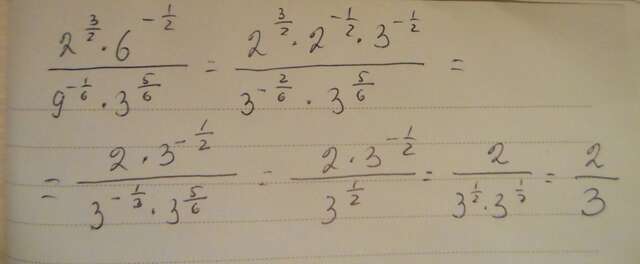 \frac{2^{\frac{3}{2}} \cdot 6^{-\frac{1}{2}}}{9^{-\frac{1}{6}} \cdot 3^{\frac{5}{6}}} = \frac{2^{\frac{3}{2}} \cdot 2^{-\frac{1}{2}} \cdot 3^{-\frac{1}{2}}}{3^{-\frac{2}{6}} \cdot 3^{\frac{5}{6}}} =
= \frac{2 \cdot 3^{-\frac{1}{2}}}{3^{-\frac{1}{3}} \cdot 3^{\frac{5}{6}}} = \frac{2 \cdot 3^{-\frac{1}{2}}}{3^{\frac{1}{2}}} = \frac{2}{3^{\frac{1}{2}} \cdot 3^{\frac{1}{2}}} = \frac{2}{3}